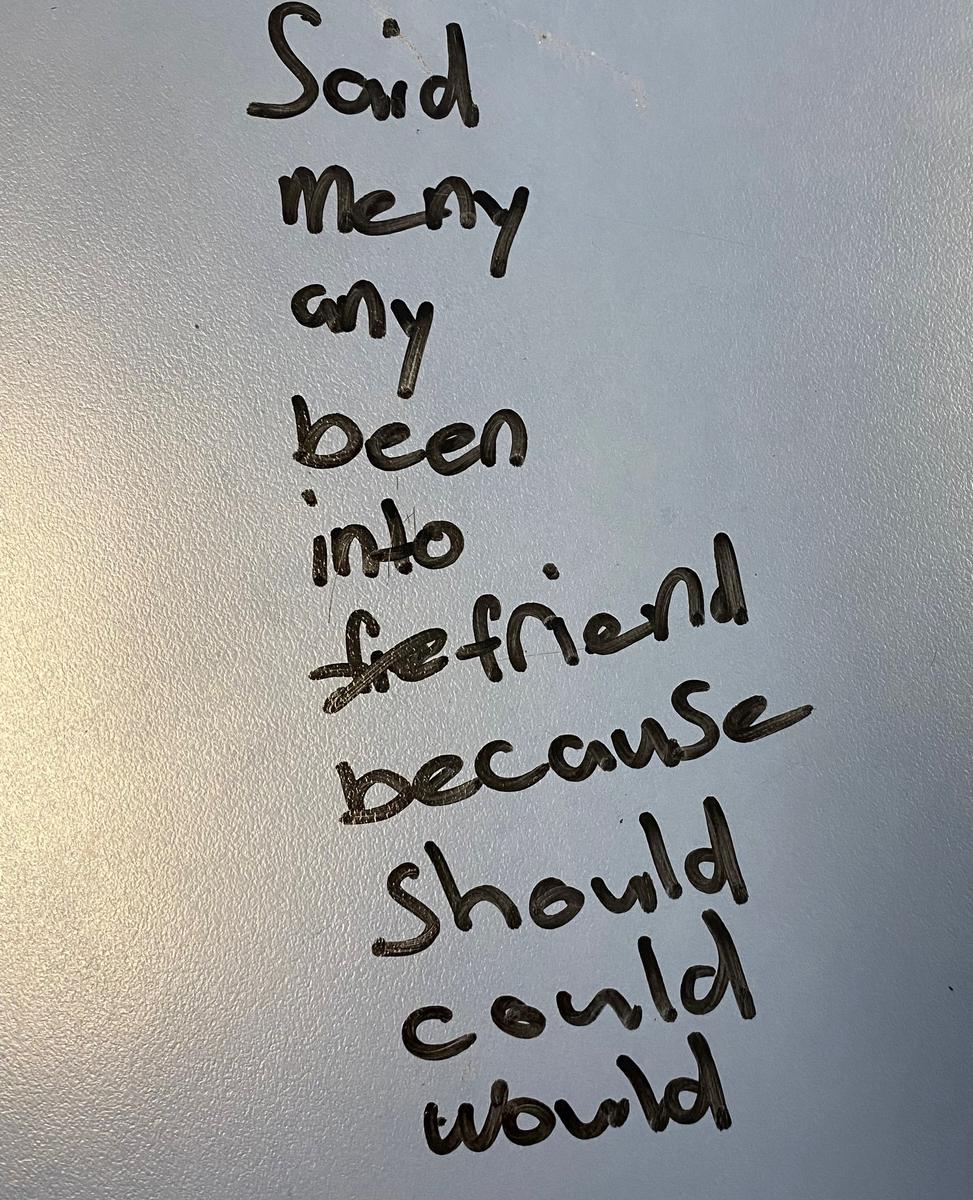 Said
meny
any
been
into
friend
because
should
could
would